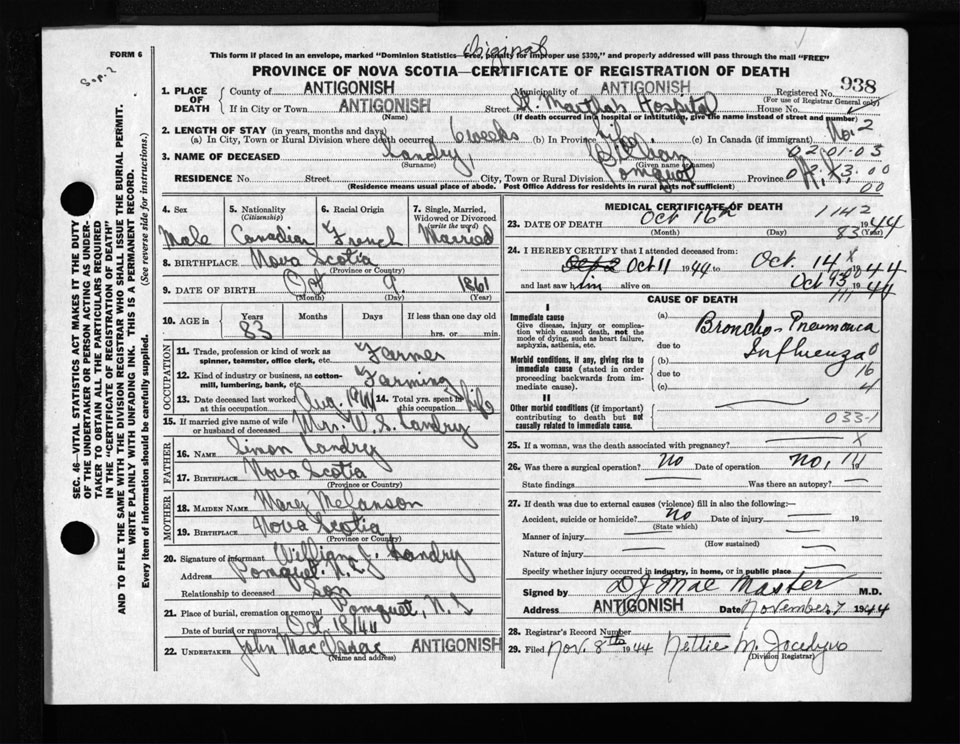 FORM 6
Sep. 2
Original
This form if placed in an envelope, marked "Dominion Statistics—Free, penalty for improper use $300," and properly addressed will pass through the mail "FREE"
PROVINCE OF NOVA SCOTIA—CERTIFICATE OF REGISTRATION OF DEATH
1. PLACE OF DEATH
County of ANTIGONISH Municipality of ANTIGONISH Registered No. 938
(For use of Registrar General only)
If in City or Town ANTIGONISH Street St. Martha's Hospital House No.
(Name) (If death occurred in a hospital or institution, give the name instead of street and number)
2. LENGTH OF STAY (in years, months and days)
(a) In City, Town or Rural Division where death occurred 6 weeks (b) In Province life (c) In Canada (if immigrant)
No. 2
02.01.03
3. NAME OF DECEASED Landry William
(Surname) (Given name or names)
RESIDENCE No. Street City, Town or Rural Division Pomquet Province N.S.
(Residence means usual place of abode. Post Office Address for residents in rural parts not sufficient)
00
SEC. 46—VITAL STATISTICS ACT MAKES IT THE DUTY
OF THE UNDERTAKER OR PERSON ACTING AS UNDER-
TAKER TO OBTAIN ALL THE PARTICULARS REQUIRED
IN THE "CERTIFICATE OF REGISTRATION OF DEATH"
AND TO FILE THE SAME WITH THE DIVISION REGISTRAR WHO SHALL ISSUE THE BURIAL PERMIT.
WRITE PLAINLY WITH UNFADING INK. THIS IS A PERMANENT RECORD.
Every item of information should be carefully supplied. (See reverse side for instructions.)
4. Sex 5. Nationality (Citizenship) 6. Racial Origin 7. Single, Married, Widowed or Divorced (write the word)
Male Canadian French Married
8. BIRTHPLACE Nova Scotia
(Province or Country)
9. DATE OF BIRTH Oct 9. 1861
(Month) (Day) (Year)
10. AGE in Years Months Days If less than one day
83 hrs. or min.
OCCUPATION
11. Trade, profession or kind of work as spinner, teamster, office clerk, etc. Farmer
12. Kind of industry or business, as cotton-mill, lumbering, bank, etc. Farming
13. Date deceased last worked at this occupation Aug. 1944 14. Total yrs. spent in this occupation life
15. If married give name of wife or husband of deceased Mrs. W. S. Landry
FATHER
16. NAME Simon Landry
17. BIRTHPLACE Nova Scotia
(Province or Country)
MOTHER
18. MAIDEN NAME Mary Melanson
19. BIRTHPLACE Nova Scotia
(Province or Country)
20. Signature of informant William J. Landry
Address Pomquet. N.S.
Relationship to deceased son
21. Place of burial, cremation or removal Pomquet, N.S.
Date of burial or removal Oct. 18/44
22. UNDERTAKER John MacIsaac ANTIGONISH
(Name and address)
MEDICAL CERTIFICATE OF DEATH
23. DATE OF DEATH Oct 16th 1944
(Month) (Day) (Year)
1142
83
24. I HEREBY CERTIFY that I attended deceased from:
Sep 2 Oct 11 1944 to Oct. 14 1944
and last saw him alive on Oct 13 1944
CAUSE OF DEATH
I
Immediate cause
Give disease, injury or complication which caused death, not the mode of dying, such as heart failure, asphyxia, asthenia, etc.
(a) Broncho-Pneumonia
due to
Influenza
Morbid conditions, if any, giving rise to immediate cause (stated in order proceeding backwards from immediate cause).
(b)
due to
(c)
0
16
4
II
Other morbid conditions (if important) contributing to death but not causally related to immediate cause.
033-1
25. If a woman, was the death associated with pregnancy? X
26. Was there a surgical operation? No Date of operation No, 19
State findings Was there an autopsy?
27. If death was due to external causes (violence) fill in also the following:—
Accident, suicide or homicide? No Date of injury 19
(State which)
Manner of injury
(How sustained)
Nature of injury
Specify whether injury occurred in industry, in home, or in public place
Signed by D J MacMaster M.D.
Address ANTIGONISH Date November 7 1944
28. Registrar's Record Number
29. Filed Nov. 8th 1944 Nettie M.
(Division Registrar)